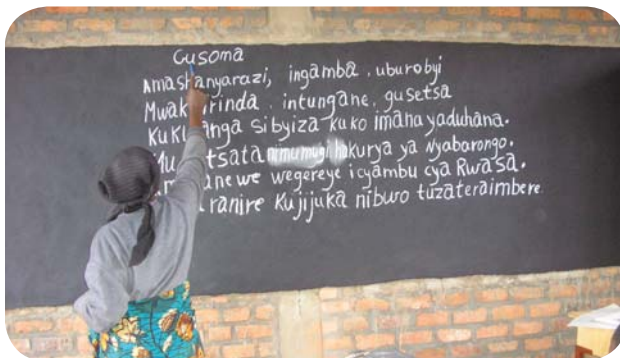 Gusoma
Amashanyarazi, ingamba, uburobyi
Mwak rinda. intungane. gusetsa
Kuku anga sibyiza kuko imana yaduhana.
tsata kurya ya Nyabarongo.
anewe wegereye icyambu cya Rwasa.
ranire Kujijuka nibwo tuzateraimbere